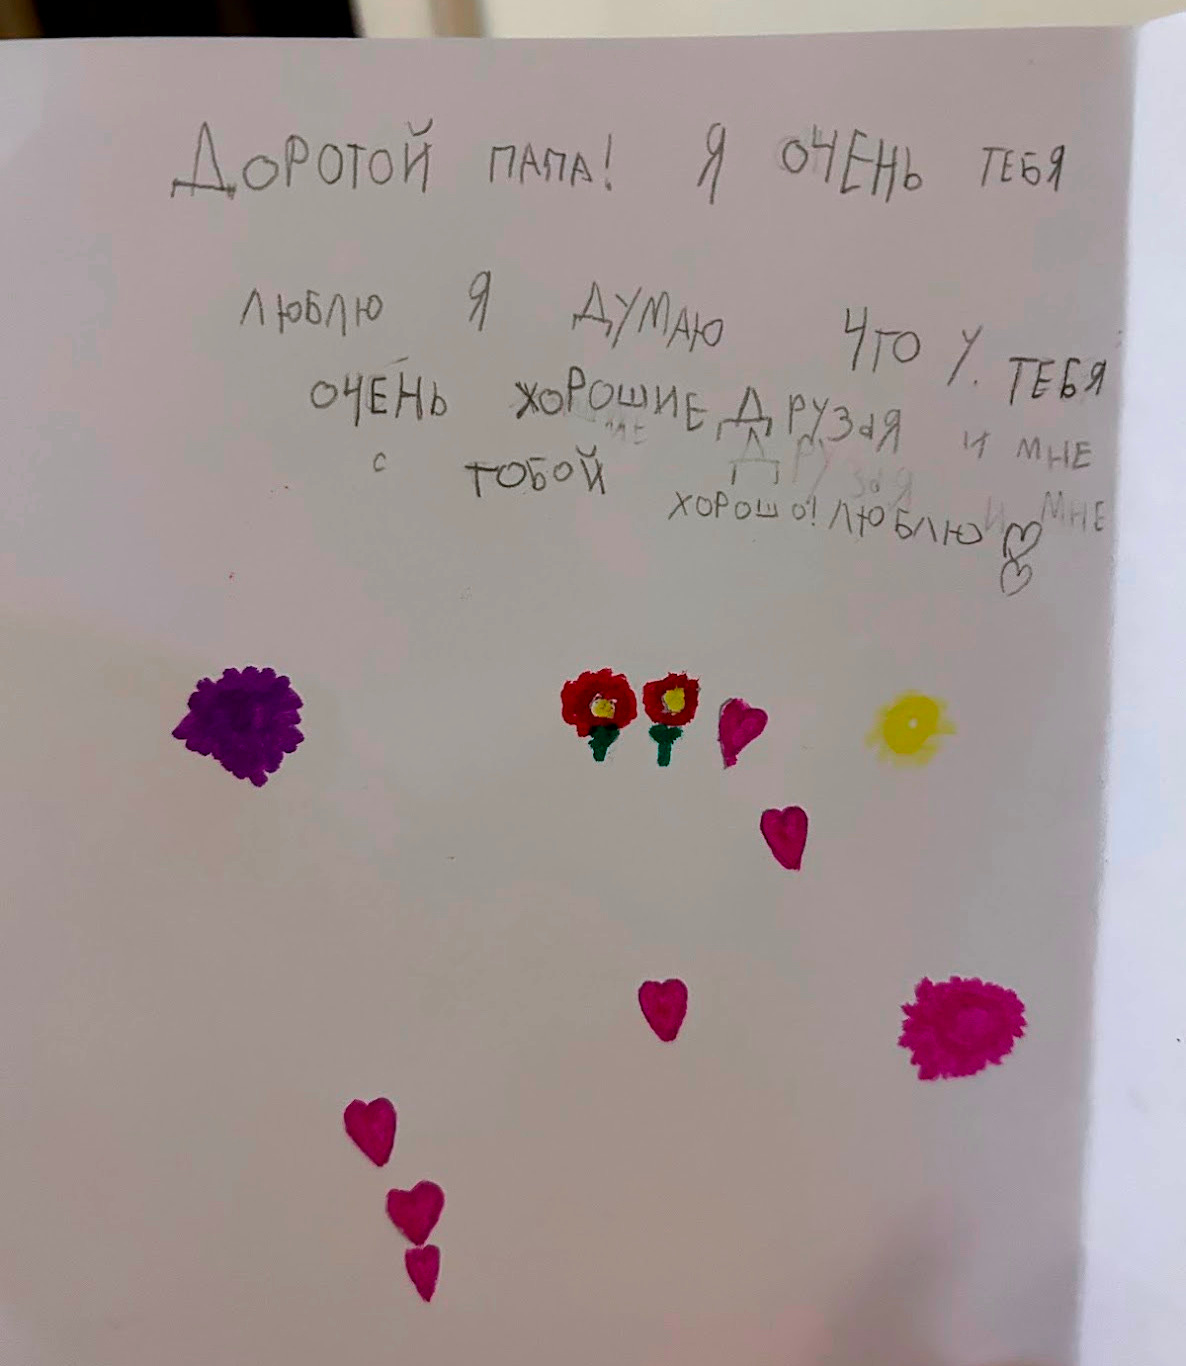 ДОРОТОЙ ПАПА! Я ОЧЕНЬ ТЕБЯ
ЛЮБЛЮ Я ДУМАЮ ЧТО У ТЕБЯ
ОЧЕНЬ ХОРОШИЕ ДРУЗАЯ И МНЕ
С ТОБОЙ ХОРОШО! ЛЮБЛЮ